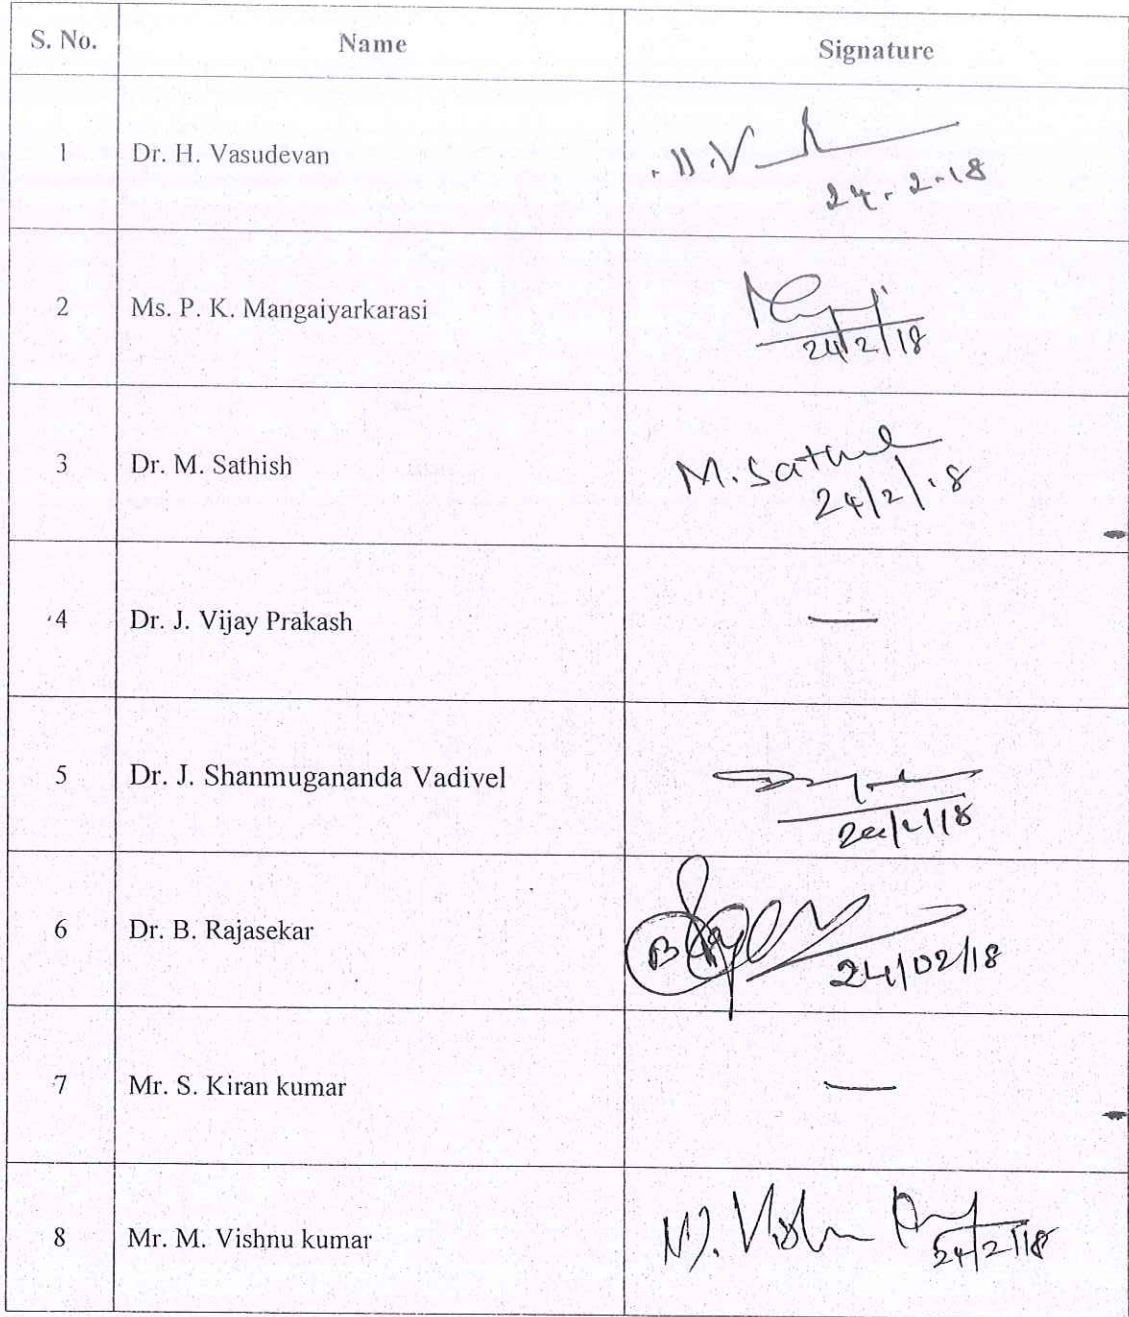 S. No. Name Signature
1 Dr. H. Vasudevan
24.2.18
2 Ms. P. K. Mangaiyarkarasi
24/2/18
3 Dr. M. Sathish M. Sathish
24/2/18
4 Dr. J. Vijay Prakash —
5 Dr. J. Shanmugananda Vadivel
6 Dr. B. Rajasekar
24/02/18
7 Mr. S. Kiran kumar —
8 Mr. M. Vishnu kumar
24/2/18